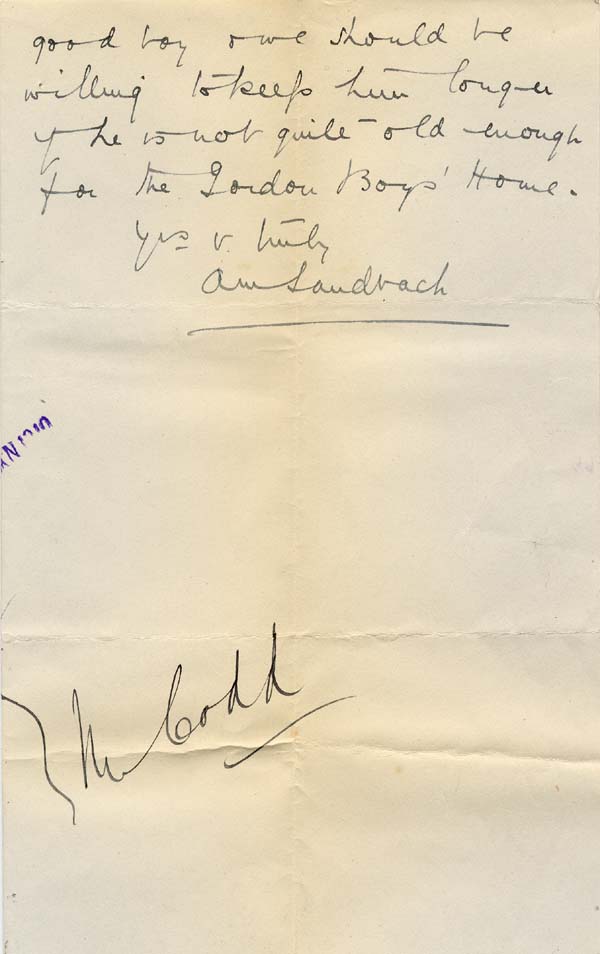 good boy & we should be
willing to keep him longer
if he is not quite old enough
for the Gordon Boys' Home.
Yrs v. truly
AM Sandbach
N 1910
Mr Codd